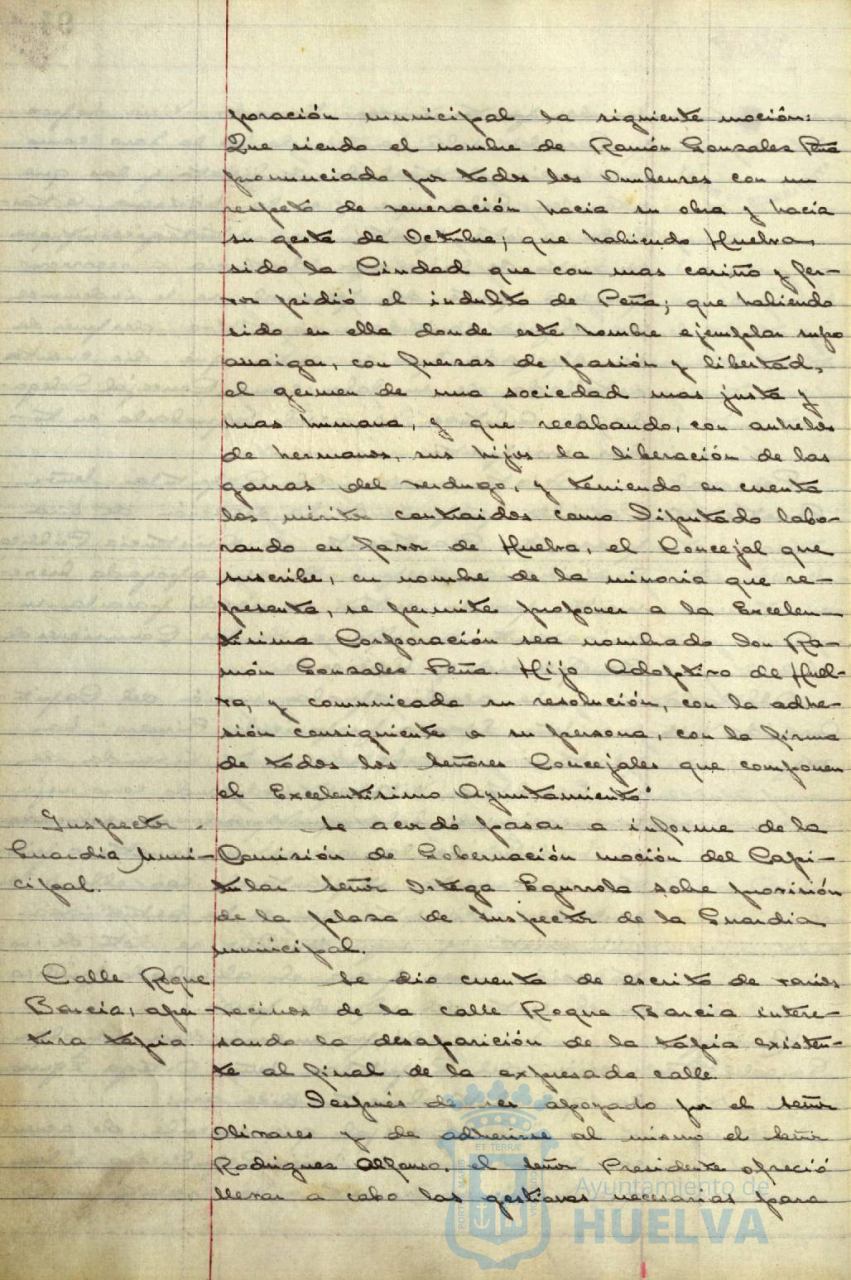 poración municipal la siguiente moción:
Que siendo el nombre de Ramón Gonzales Peña
pronunciado por todos los Onubenses con un
respeto de veneración hacia su obra y hacia
su gesta de Octubre; que habiendo Huelva
sido la Ciudad que con mas cariño y fer-
vor pidió el indulto de Peña; que habiendo
sido en ella donde este hombre ejemplar supo
arraigar, con fuerzas de pasión y libertad,
el germen de una sociedad mas justa y
mas humana, y que recabando, con anhelos
de hermanos, sus hijos la liberación de las
garras del verdugo, y teniendo en cuenta
los méritos contraidos como Diputado labo-
rando en favor de Huelva, el Concejal que
suscribe, en nombre de la minoria que re-
presenta, se permite proponer a la Excelen-
tisima Corporación sea nombrado don Ra-
món Gonzales Peña. Hijo Adoptivo de Huel-
va, y comunicada su resolución, con la adhe-
sión consiguiente a su persona, con la firma
de todos los Señores Concejales que componen
el Excelentisimo Ayuntamiento"
Inspector
Guardia Muni-
cipal.
Se acordó pasar a informe de la
Comisión de Gobernación moción del Capi-
tular Señor Ortega Egurrola sobre provisión
de la plaza de Inspector de la Guardia
municipal.
Calle Roque
Barcia, aper-
tura tapia
Se dio cuenta de escrito de varios
vecinos de la calle Roque Barcia intere-
sando la desaparición de la tapia existen-
te al final de la expresada calle.
Después de ser apoyado por el Señor
Olivares y de adherirse al mismo el Señor
Rodriguez Alfonso, el Señor Presidente ofreció
llevar a cabo las gestiones necesarias para
Ayuntamiento de
HUELVA